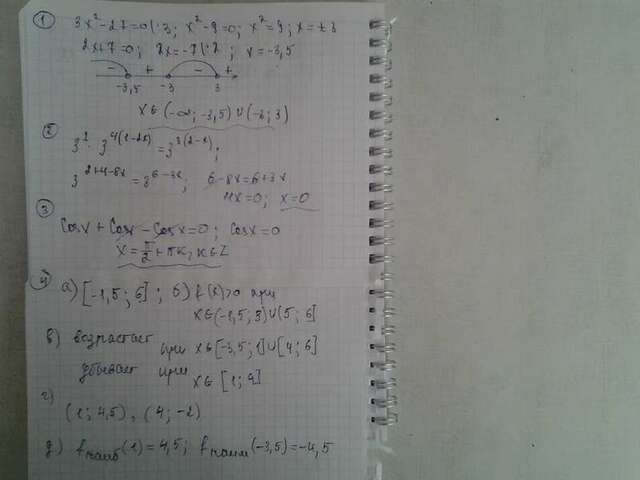 1 3x²-27=0|:3; x²-9=0; x²=9; x=±3
2x+7=0; 2x=-7|:2; x=-3,5
- + - +
-3,5 -3 3
x∈(-∞; -3,5)∪(-3; 3)
2 3²·3^4(1-2x)=3^3(2-x);
3^2+4-8x=3^6-3x; 6-8x=6+3x
11x=0; x=0
3 cosx+cosx-cosx=0; cosx=0
x=π/2+πk, k∈Z
4 а) [-1,5; 6]; б) f(x)>0 при
x∈(-1,5; 3)∪(5; 6]
в) возрастает при x∈[-3,5; 1]∪[4; 6]
убывает при x∈[1; 4]
г) (1; 4,5), (4; -2)
д) fнаиб(1)=4,5; fнаим(-3,5)=-4,5